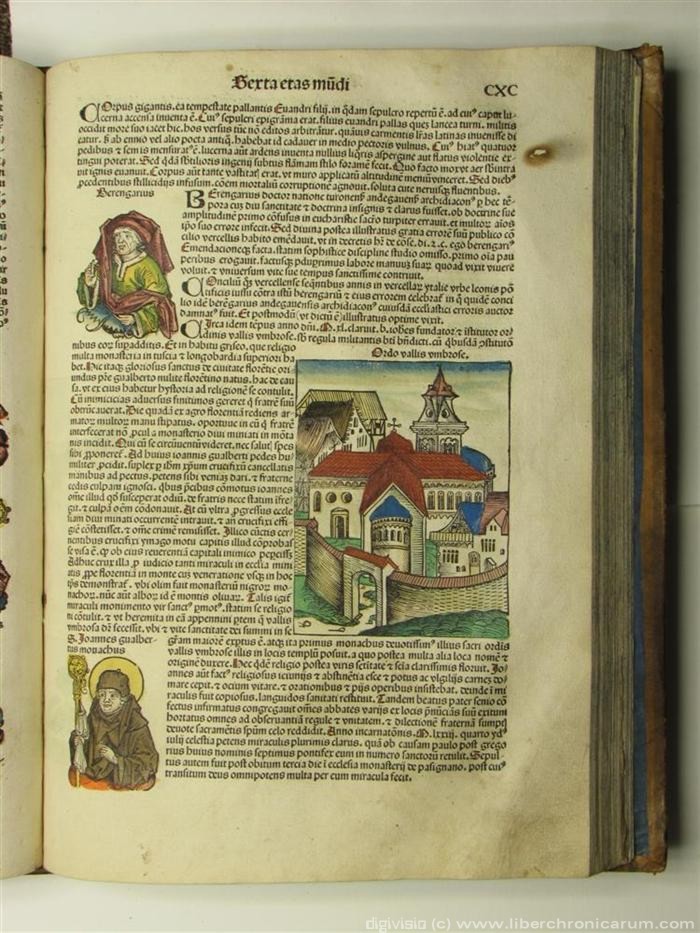 Sexta etas mũdi
CXC
COrpus gigantis. ea tempestate pallantis Euandri filij. in q̃dam sepulcro repertũ ẽ. ad cuiꝰ caput lu-
cerna accensa inuenta ẽ. Cuiꝰ sepulcri epigrãma erat. filius euandri pallas ques lancea turni. militis
occidit more suo iacet hic. hos versus tũc nõ editos arbitrãtur. quãuis carmentis lr̃as latinas inuenisse di
catur. ẽ ab ennio vel alio poeta antiq̃. habebat id cadauer in medio pectoris vulnus. Cuiꝰ hiatꝰ quatuor
pedibus ⁊ semis mensuratꝰ ẽ. lucerna aũt ardens inuenta nulliꝰ liq̃ris aspergine aut flatus violentie ex-
tingui poterat. Sed q̃dã sbtilioris ingenij subtus flãmam stilo foramẽ fecit. Quo facto mox vt aer sbintra
uit ignis euanuit. Corpus aũt tante vastitatꝭ erat. vt muro applicatũ altitudinẽ meniũ vinceret. Sed diebꝰ
p̃cedentibus stillicidijs infusum. cõem mortaliũ corruptionẽ agnouit. soluta cute neruisqꝫ fluentibus.
Berengarius
BErengarius doctor natione turonensꝭ andegauensꝭ archidiaconꝰ p̱ hec tẽ-
pora cuz diu sanctitate ⁊ doctrina insignis ⁊ clarus fuisset. ob doctrine sue
amplitudinẽ primo cõfisus in eucharistie sacr̃o turpiter errauit. et multoꝝ aĩos
ip̃o suo errore infecit. Sed diuina postea illustratus gratia errorẽ suũ publico cõ
cilio vercellis habito emẽdauit. vt in decretis hr̃ de cõse. di. 2. c. ego berengariꝰ
Emendacioneqꝫ facta. statim sophistice discipline studio omisso. primo oĩa pau
peribus erogauit. factusqꝫ p̃duprimus labore manuuꝫ suaꝝ quoad vixit viuere
voluit. ⁊ vniuersum vite sue tempus sanctissime contriuit.
COnciliũ q̃ꝫ vercellense seq̃ntibus annis in vercellaꝝ ytalie vrbe leonis põ
tificis iussu cõtra istũ berengariũ ⁊ eius errorem celebratꝭ in q̃ quidẽ conci
lio idẽ berẽgarius andegauensis archidiaconꝰ cuiusdã ecclĩastici erroris auctor
damnatꝰ fuit. Et postmodũ (vt dictũ ẽ) illustratus optime vixit.
CIrca idem tẽpus anno dñi. M. xl. claruit. b. iohẽs fundator ⁊ ĩstitutor or-
dinis vallis vmbrose. sb̃ regula militantis bt̃i bñdicti. cũ q̃busdã p̱stitutõ
nibus eoꝝ supadditis. Et in habitu griseo. que religio
Ordo vallis vmbrose.
multa monasteria in tuscia ⁊ longobardia superiori ha
bet. Hic itaqꝫ gloriosus sanctus de ciuitate florẽtie ori
undus p̃re gualberto milite florẽtino natus. hac de cau
sa. vt ex eius habetur hystoria ad religionẽ se contulit.
Cũ inimicicias aduersus finitimos gereret q̃ fratrẽ suũ
obtrũcauerat. Die quadã ex agro florentiã rediens ar-
matoꝝ multoꝝ manu stipatus. oportune in eũ q̃ fratrẽ
interfecerat nõ p̱cul a monasterio diui miniati in mõta
nis incidit. Qui cũ se circũuentũ videret. nec salutꝭ spes
sibi p̱poneretꝭ. Ad huius ioannis gualberti pedes hu
militer p̱cidit. suplex p̱ ihm xp̃um crucifixũ cancellatis
manibus ad pectus. petens sibi veniã dari. ⁊ fraterne
cedis culpam ignosci. q̃bus p̱cibus cõmotus ioannes
om̃e illud q̃d susceperat odiũ. de fratris nece statim ĩfre-
git. ⁊ culpã oẽm cõdonauit. At cũ vltra p̱gressus eccle
siam diui miniati occurrentẽ intrauit. ⁊ añ crucifixi effi-
giẽ cõstetisset. ⁊ om̃e crimẽ remisisset. Illico cũctis cer-
nentibus crucifixi ymago motu capitis illud cõprobas
se visa ẽ. q̃ ob eius reuerentiã capitali inimico peperciss̃
Adhuc crux illa p̱ iudicio tanti miraculi in ecclĩa mini
atis p̱pe florentiã in monte cuꝫ veneratione vsqꝫ in hoc
tp̃s demonstratꝭ. vbi olim fuit monasteriũ nigroꝝ mo-
nachoꝝ. nũc aũt alboꝝ id ẽ montis oliuaꝝ. Talis igit̃
miraculi monumento vir sanctꝰ p̱motꝰ. statim se religio
ni cõtulit. ⁊ vt heremita in eã appennini p̱tem q̃ vallis
vmbrosa dr̃ secessit. vbi ⁊ vite sanctitate dei summi in se
S. Joannes gualber-
tus monachus
grãm maiorẽ exp̱tus ẽ. atqꝫ ita primus monachus deuotissimꝰ illius sacri ordĩs
vallis vmbrose illis in locis templũ posuit. a quo postea multa alia loca nomẽ ⁊
originẽ duxere. Nec q̃dẽ religio postea viris scititate ⁊ sciã clarissimis floruit. Jo-
annes aũt factꝰ religiosus ieiunijs ⁊ abstinẽtia esce ⁊ potus ac vigilijs carnes do-
mare cepit. ⁊ ocium vitare. ⁊ orationibus ⁊ pijs operibus insistebat. deinde ĩ mi
raculis fuit copiosus. languidos sanitati restituit. Tandem beatus pater senio cõ
fectus infirmatus congregauit om̃es abbates varijs ex locis p̱uincias suũ exitum
hortatus omnes ad obseruantiã regule ⁊ vnitatem. ⁊ dilectionẽ fraternã sumptꝭ
deuote sacramẽtis spũm celo reddidit. Anno incarnatõnis. M. lxxiij. quarto yd̃
iulij celestia petens miraculis plurimis clarus. quã ob causam paulo post grego
rius huius nominis septimus pontifex eum in numero sanctoꝝ retulit. Sepul-
tus autem fuit post obitum tercia die ĩ ecclesia monasterij de pasignano. post cuiꝰ
transitum deus omnipotens multa per eum miracula fecit.
digivisio (c) www.liberchronicarum.com